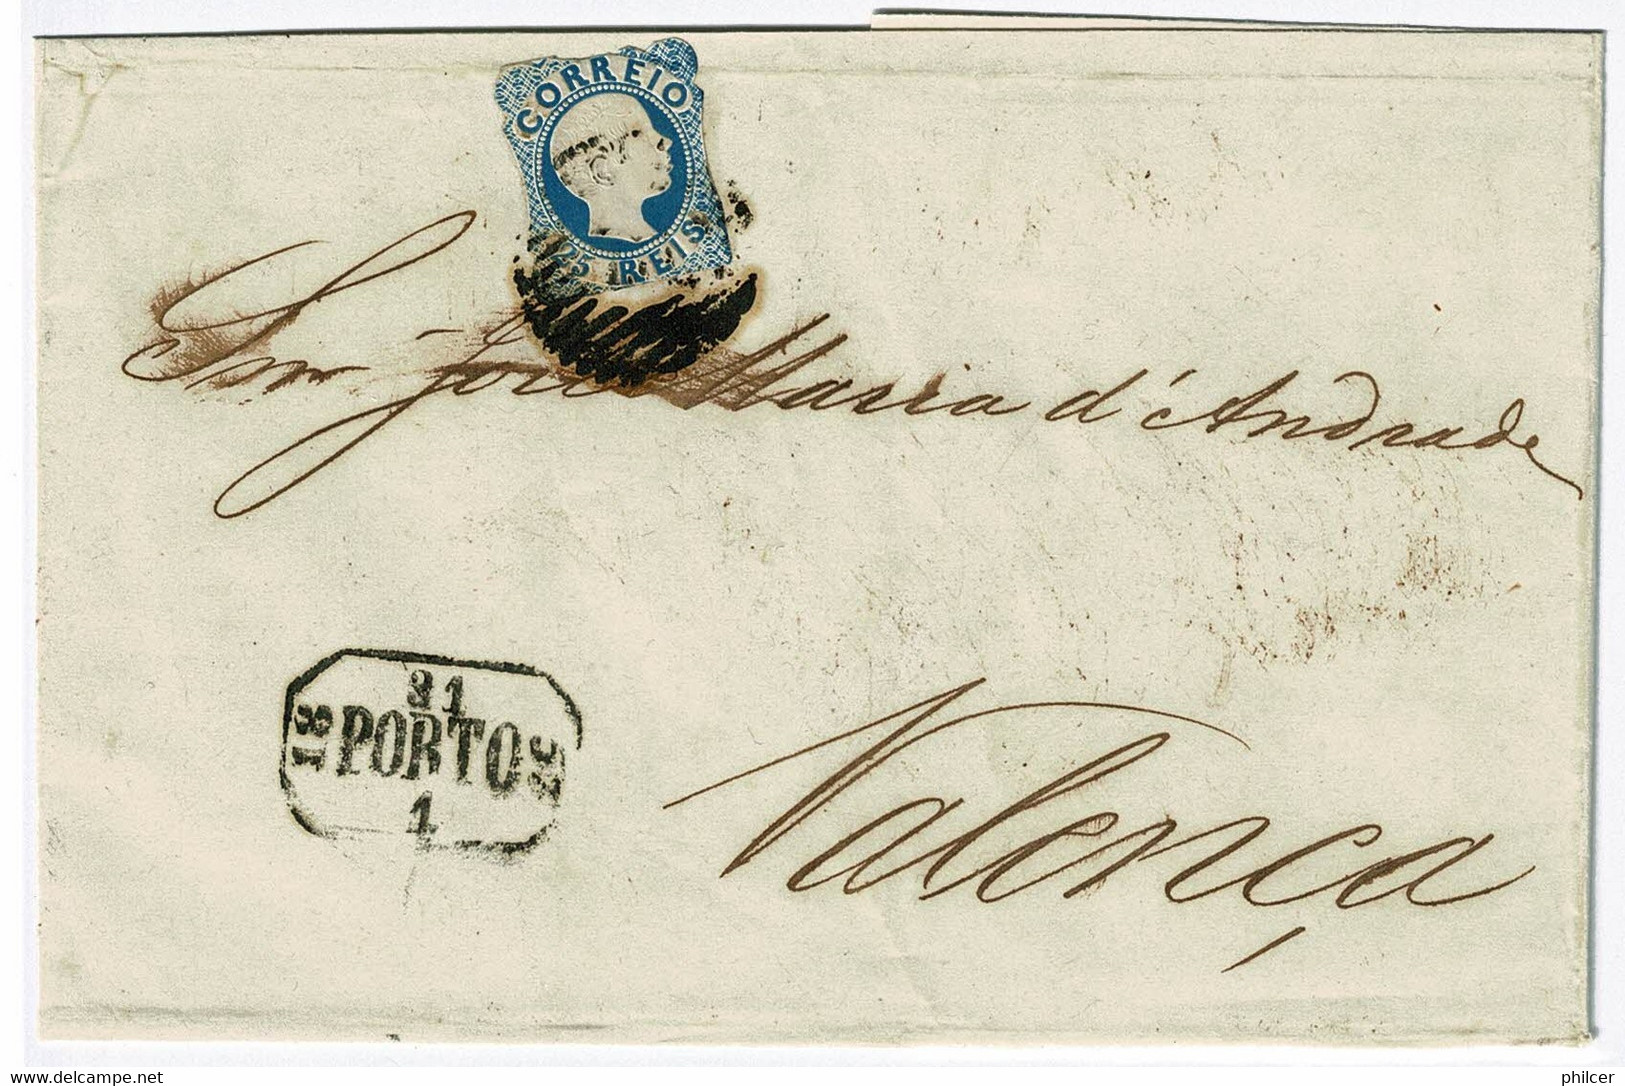 CORREIO
25 REIS
Snr José Maria d'Andrade
31
18 PORTO
1
Valença
www.delcampe.net
philcer